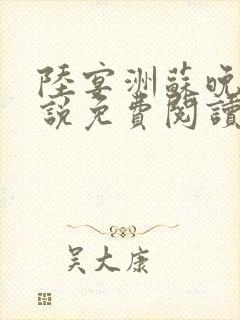 陸宴洲蘇晚
說免費閱讀
吴大康